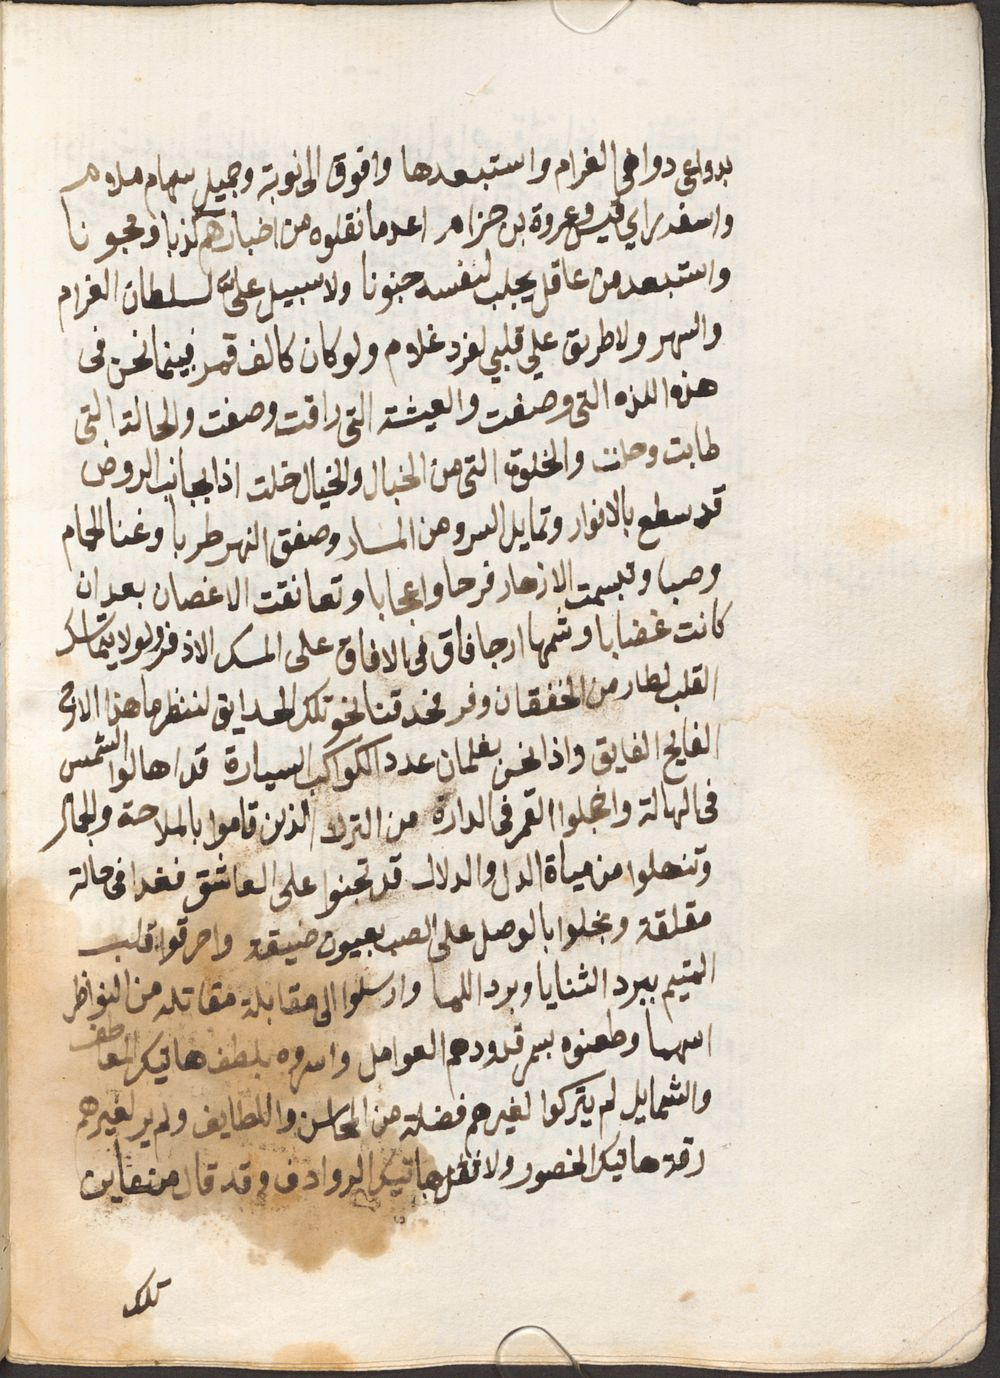 بدواعي دواعي الغرام واستبعدها وافوق الى نوبة وجميل سهام ملام
واسفد راي قيس وعروة بن حزام اعد ما نقلوه من اخبارهم كذبا ومجونا
واستبعد من عاقل يجلب لنفسه جنونا ولا سبيل علىّ لسلطان الغرام
والسهر ولا طريق علي قلبي لفرد غلام ولو كان كالف قمر فبينما نحن فى
هذه اللذه التى وصفت والعيشة التى راقت وصفت والحالة التى
طابت وحلت والخلوة التى من الخبال والخيال خلت اذا بجانب الروض
قد سطع بالانوار وتمايل السرو من المسار وصفق النهر طربا وغنا الحمام
وصبا وتبسمت الازهار فرحا واعجابا وتعانقت الاغصان بعد ان
كانت غضابا وشممها ارجا فاق فى الافاق على المسك الاذفر ولولا يتماسك
القلب لطار من الخفقان وفر فحدقنا نحو تلك الحدايق لننظر ما هذا الارج
الفايح الفايق واذا نحن بغلمان عدد الكواكب السيارة قد اهالوا الشمس
فى الهالة واخجلوا القمر فى الدارة من الترك الذين قاموا بالملاحة والجمال
وتنهلوا من مياة الدل والدلال قد تجنوا على العاشق فغدا فى حالة
مقلقة وبخلوا بالوصل على الصب بعيون ضيقة واحرقوا قلب
المتيم ببرد الثنايا وبرد اللما وارسلوا الى مقابلة مقاتله من النواظر
اسهما وطعنوه بسمر قدودهم العوامل واسروه بلطف هاتيك المعاطف
والشمايل لم يتركوا لغيرهم فضلة من المحاسن واللطايف ولم ير لغيرهم
رقة هاتيك الخصور ولا ثقل هاتيك الروادف وقد قال من عاين
تلك